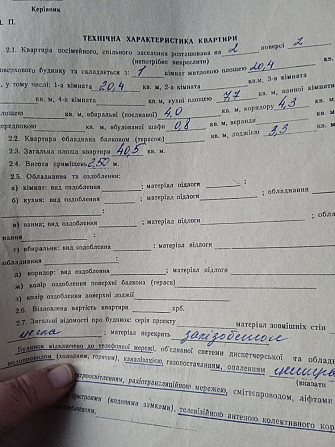 Керівник
М. П.
ТЕХНІЧНА ХАРАКТЕРИСТИКА КВАРТИРИ
2.1. Квартира посімейного, спільного заселення розташована на 2 поверсі 2
(непотрібне викреслити)
поверхового будинку та складається з 1 кімнат житловою площею 20,4
у тому числі: 1-а кімната 20,4 кв. м, 2-а кімната кв.м, 3-я кімната
кв. м, 4-а кімната кв. м, кухні площею 7,7 кв. м, ванної кімнати
площею кв. м, вбиральні (поєднаної) 4,0 кв. м, коридору 4,3 кв. м,
передпокою кв. м, вбудованої шафи 0,8 кв. м, веранди
2.2. Квартира обладнана балконом (терасою) кв. м, лоджією 3,3
2.3. Загальна площа квартири 40,5 кв. м.
2.4. Висота приміщень 2,50 м.
2.5. Обладнання та оздоблення:
а) кімнат: вид оздоблення ; матеріал підлоги ; обладнання
б) кухня: вид оздоблення ; матеріал підлоги
в) ванна; вид оздоблення ; матеріал підлоги ; обладнання
г) вбиральня: вид оздоблення ; матеріал підлоги
обладнання
д) коридор: вид оздоблення ; матеріал підлоги
ж) колір оздоблення поверхні балкона (тераса)
з) колір оздоблення поверхні лоджії
2.6. Відновлена вартість квартири крб.
2.7 Загальні відомості про будинок: серія проекту матеріал зовнішніх стін
цегла матеріал перекрить залізобетон
Будинок підключено до телефонної мережі, об'єднаної системи диспетчерської та
водопроводом (холодним, гарячим), каналізацією, газопостачанням, опаленням
(вказати
електроосвітленням, радіотрансляційною мережею, сміттєпроводом, ліфтами
(кодовими замками), телевізійною антеною колективного